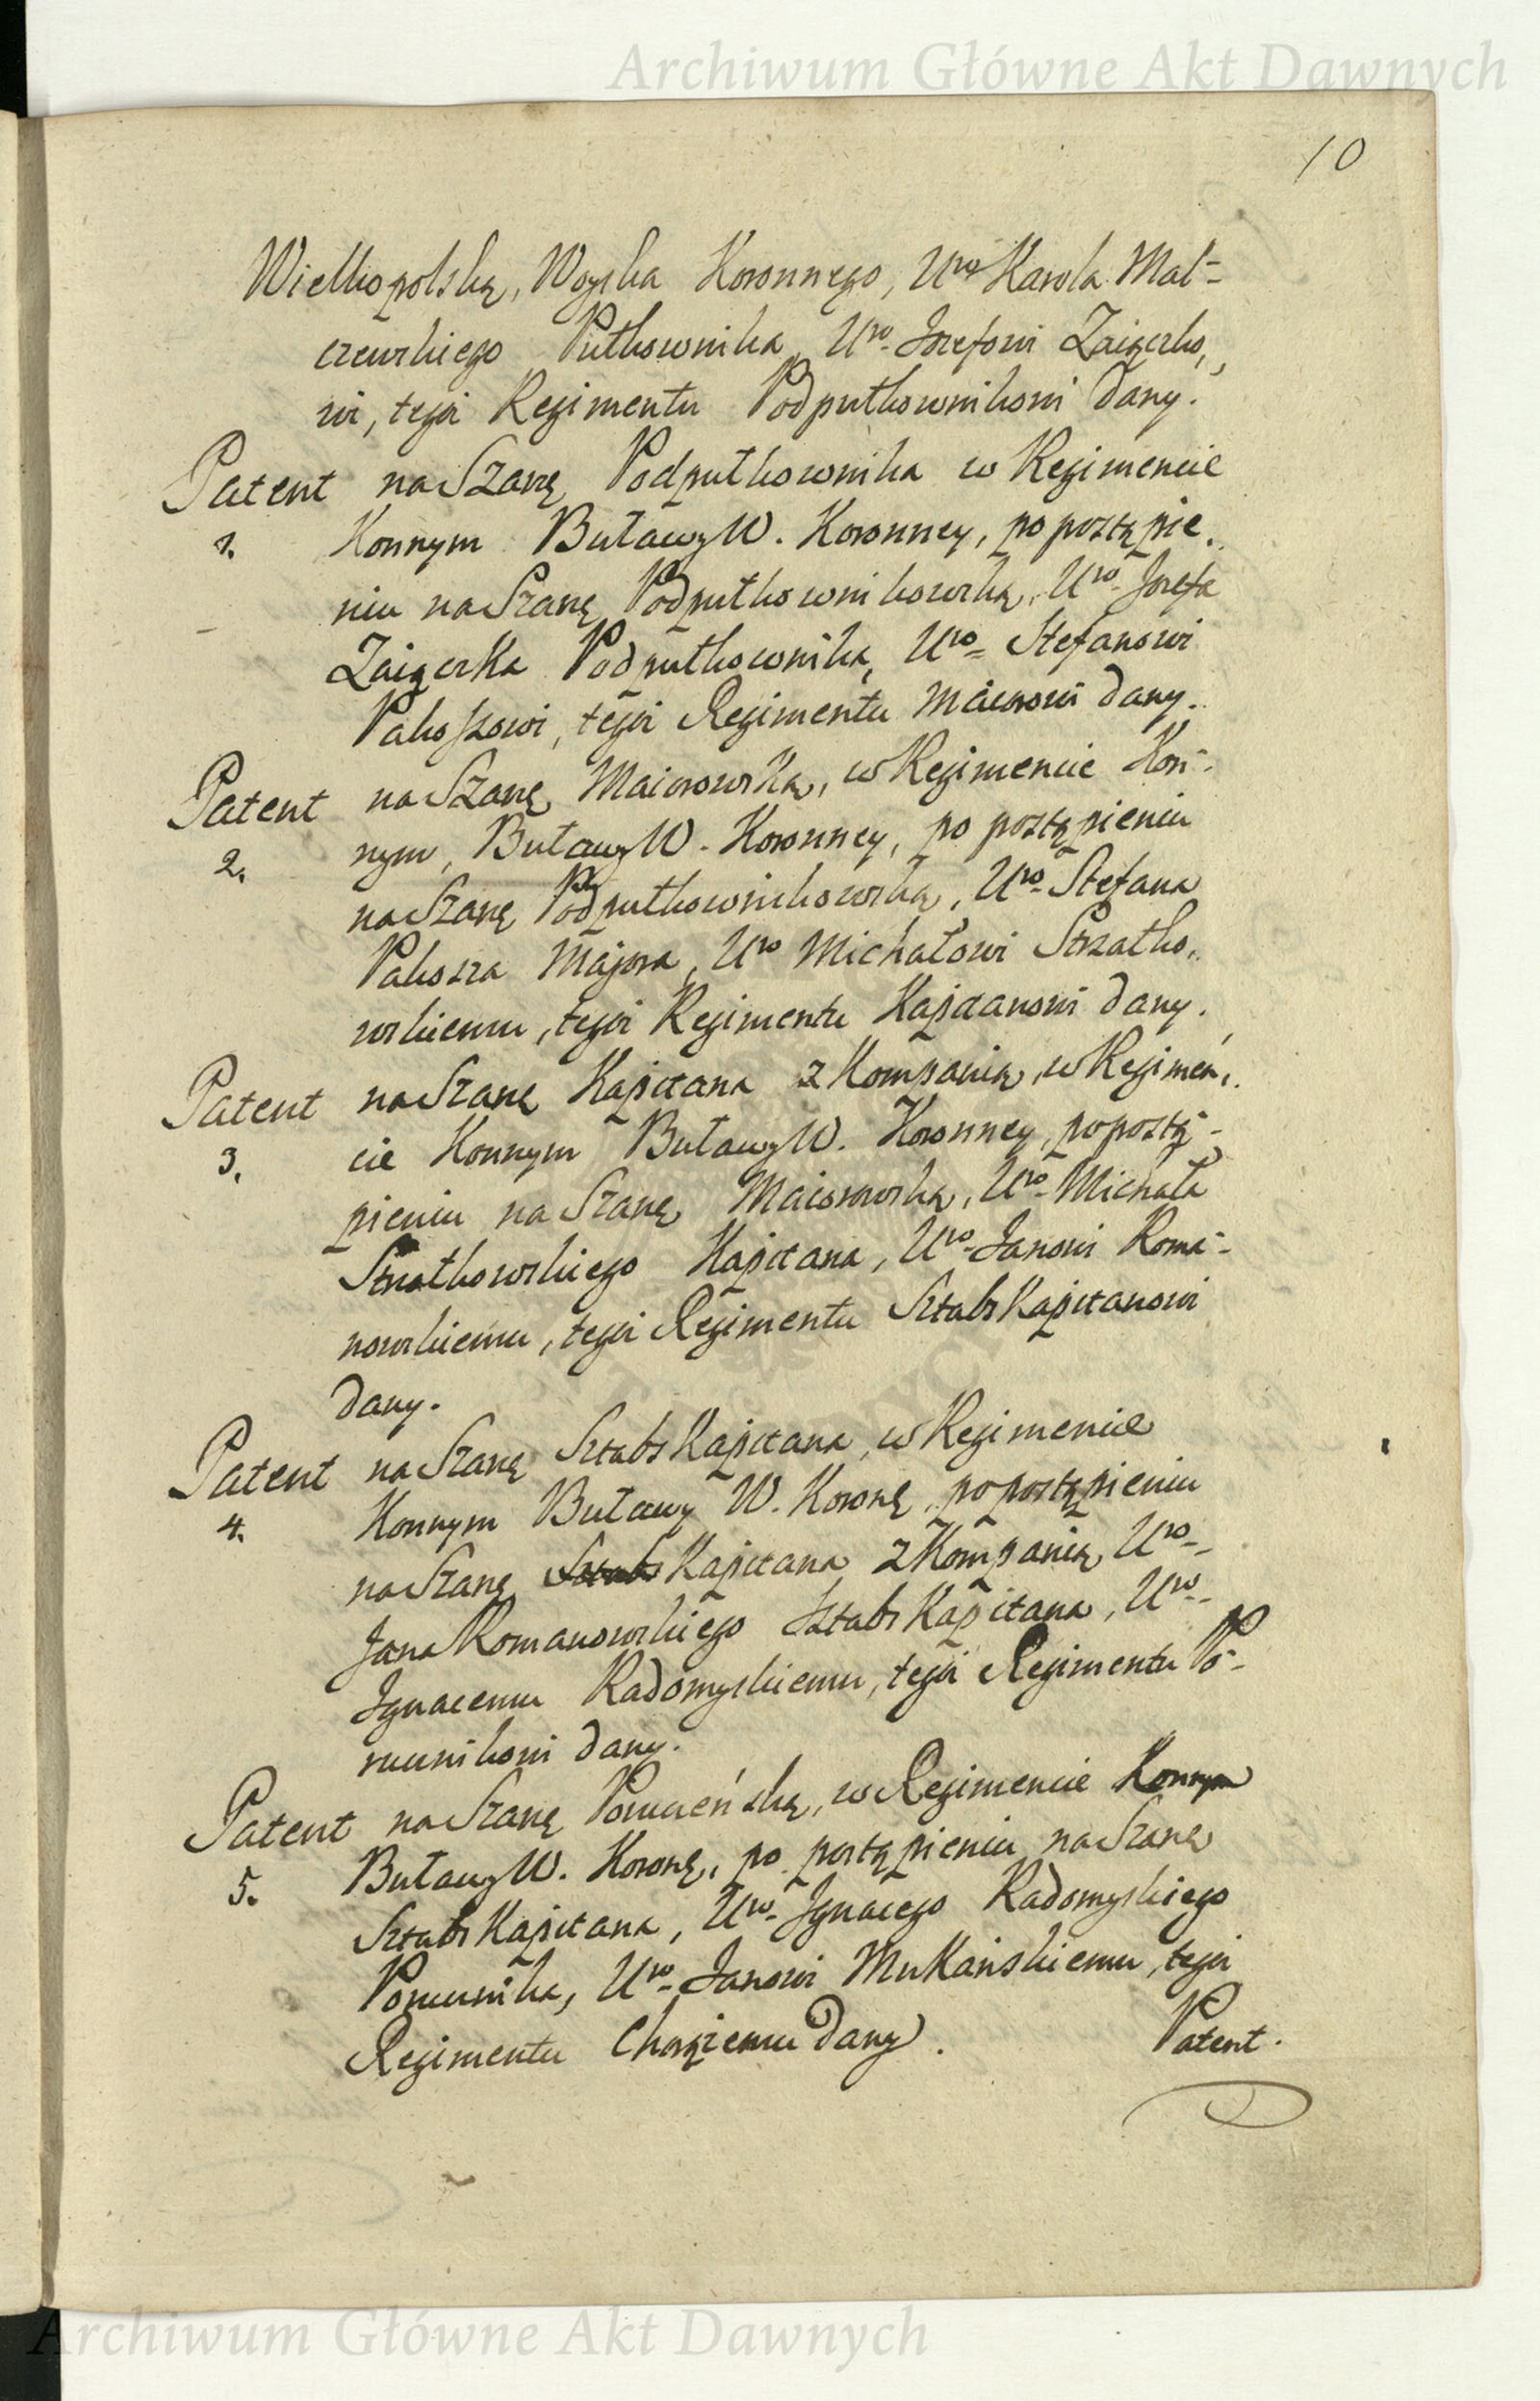 Archiwum Główne Akt Dawnych
10
Wielkopolską, Woyska Koronnego, Uro Karola Mal-
czewskiego Pułkownika, Uro- Jozefowi Zaiączko,
wi, tegoż Regimentu Podpułkownikowi dany.
Patent na Szarżę Podpułkownika w Regimencie
1. Konnym Buławy W. Koronney, po postąpie,
niu na Szarżę Podpułkownikowską, Uro- Jozefa
Zaiączka Podpułkownika, Uro= Stefanowi
Pakoszowi, tegoż Regimentu Maiorowi dany.
Patent na Szarżę Maiorowską, w Regimencie Kon-
2. nym, Buławy W. Koronney, po postąpieniu
na Szarżę Podpułkownikowską, Uro- Stefana
Pakosza Majora, Uro Michałowi Strzałko,
wskiemu, tegoż Regimentu Kapitanowi dany.
Patent na Szarżę Kapitana z Kompanią, w Regimen,
3. cie Konnym Buławy W. Koronney, po postą-
pieniu na Szarżę Maiorowską, Uro- Michała
Strzałkowskiego Kapitana, Uro- Janowi Roma-
nowskiemu, tegoż Regimentu Sztabs Kapitanowi
dany.
Patent na Szarżę Sztabs Kapitana, w Regimencie
4. Konnym Buławy W. Koronę, po postąpieniu
na Szarżę Sztabs Kapitana z Kompanią, Uro-
Jana Romanowskiego Sztabs Kapitana, Uro-
Ignacemu Radomyskiemu, tegoż Regimentu Po-
rucznikowi dany.
Patent na Szarżę Porucznńską, w Regimencie Konnym
5. Buławy W. Koronę, po postąpieniu na Szarżę
Sztabs Kapitana, Uro- Ignacego Radomyskiego
Porucznika, Uro- Janowi Mukańskiemu, tegoż
Regimentu Chorążemu dany.
Patent.
Archiwum Główne Akt Dawnych